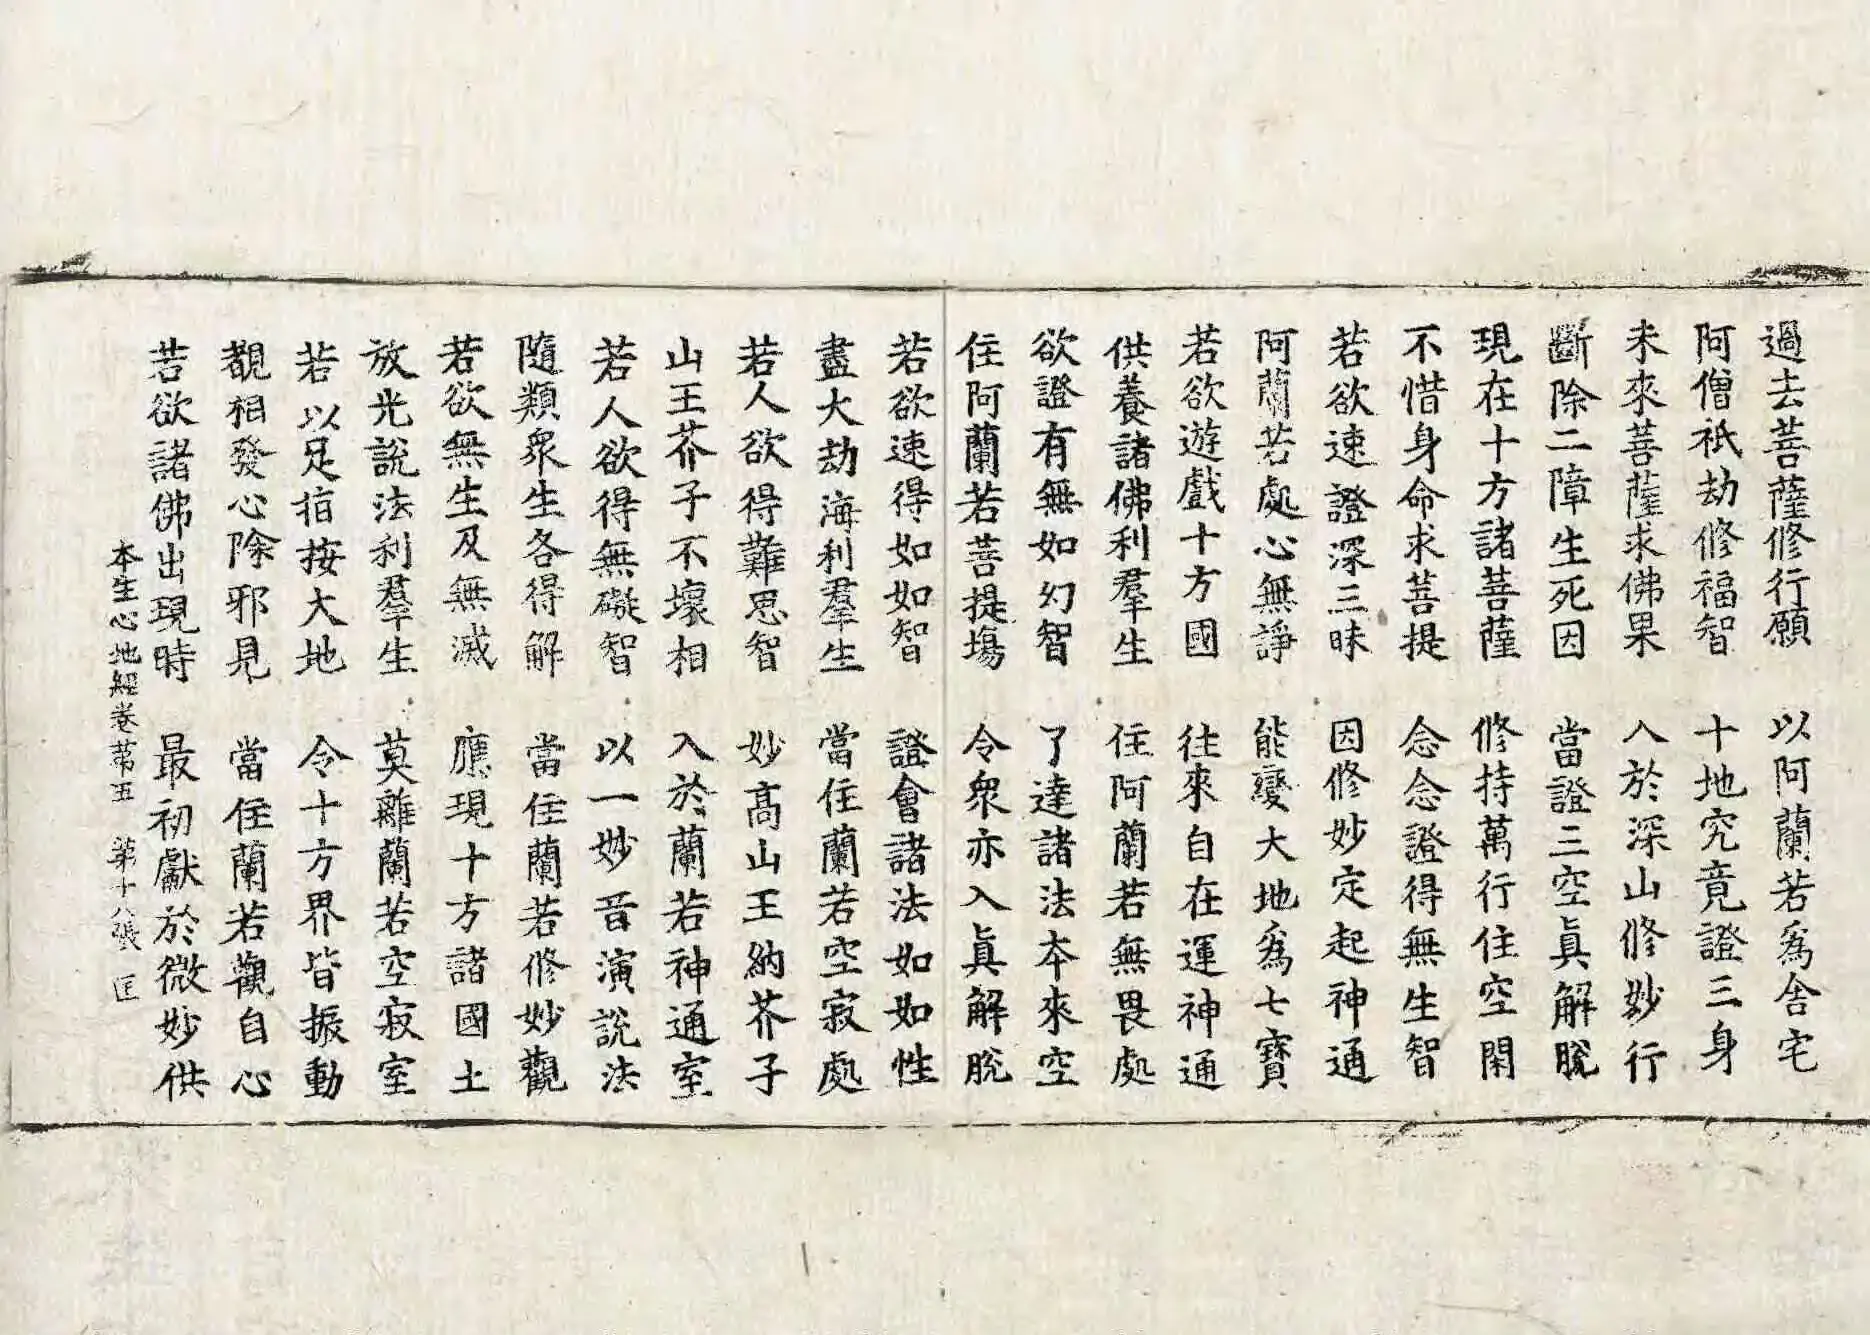 過去菩薩修行願　以阿蘭若爲舍宅
阿僧祇劫修福智　十地究竟證三身
未來菩薩求佛果　入於深山修妙行
斷除二障生死因　當證三空眞解脫
現在十方諸菩薩　修持萬行住空閑
不惜身命求菩提　念念證得無生智
若欲速證深三昧　因修妙定起神通
阿蘭若處心無諍　能變大地爲七寶
若欲遊戲十方國　往來自在運神通
供養諸佛利羣生　住阿蘭若無畏處
欲證有無如幻智　了達諸法本來空
住阿蘭若菩提場　令衆亦入眞解脫
若欲速得如如智　證會諸法如如性
盡大劫海利羣生　當住蘭若空寂處
若人欲得難思智　妙高山王納芥子
山王芥子不壞相　入於蘭若神通室
若人欲得無礙智　以一妙音演說法
隨類衆生各得解　當住蘭若修妙觀
若欲無生及無滅　應現十方諸國土
放光說法利羣生　莫離蘭若空寂室
若以足指按大地　令十方界皆振動
覩相發心除邪見　當住蘭若觀自心
若欲諸佛出現時　最初獻於微妙供
本生心地經卷苐五　第十八張　匡